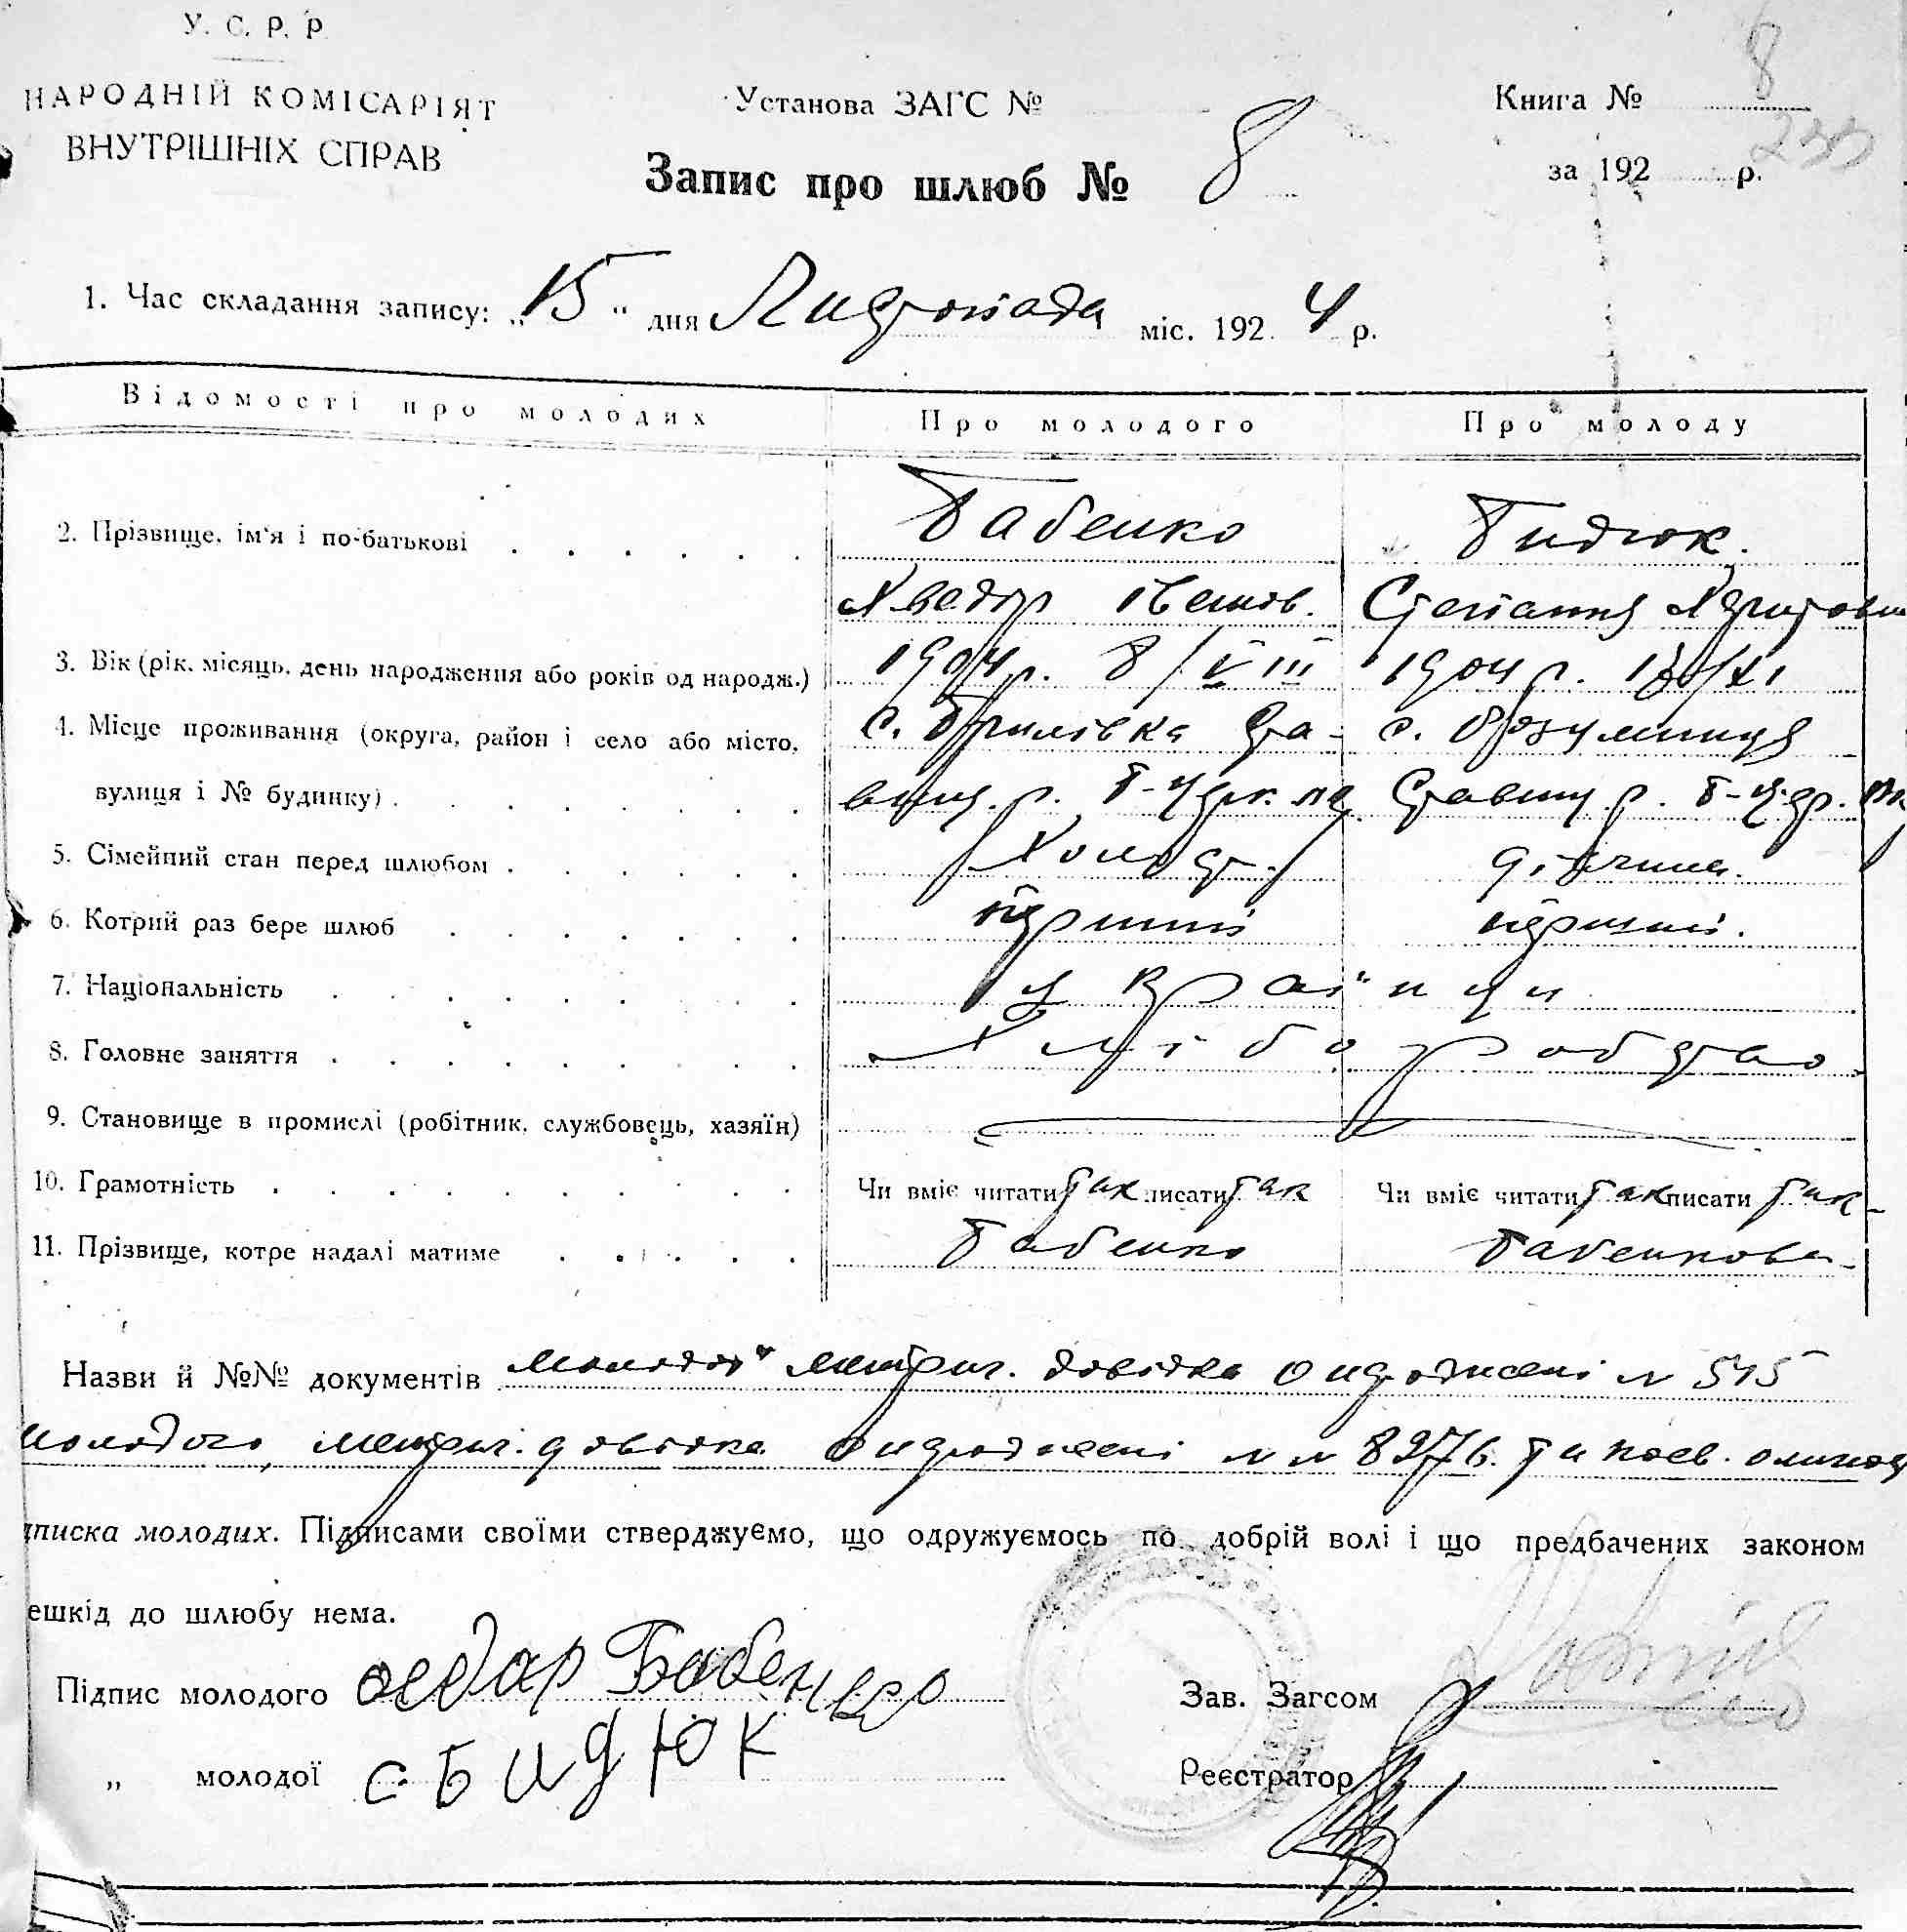 У. С. Р. Р
НАРОДНІЙ КОМІСАРІЯТ
ВНУТРІШНІХ СПРАВ
Установа ЗАГС №
Книга № 8
за 192 р.
Запис про шлюб № 8
1. Час складання запису: „15“ дня Листопада міс. 1924 р.
Відомості про молодих Про молодого Про молоду
2. Прізвище, ім'я і по-батькові Бабенко Бидюк.
Хведор Степанія
3. Вік (рік, місяць, день народження або років од народж.) 1904 р. 8/VIII 1904 р.
4. Місце проживання (округа, район і село або місто, с. Брилівка Ста- с.
вулиця і № будинку) вищ. р. Б-Церк. Ставищ. р. Б-Цер.
5. Сімейний стан перед шлюбом Холост. дівчина.
6. Котрий раз бере шлюб перший перший.
7. Національність українци
8. Головне заняття Хліборобство
9. Становище в промислі (робітник, службовець, хазяїн)
10. Грамотність Чи вміє читати так писати так Чи вміє читати так писати так
11. Прізвище, котре надалі матиме Бабенко Бабенкова
Назви й №№ документів молодої метрич. довідка о народжені № 545
молодого, метрич. довідка о народжені №№
писка молодих. Підписами своїми стверджуємо, що одружуємось по добрій волі і що предбачених законом
ешкід до шлюбу нема.
Підпис молодого Бабенко
„ молодої С. Бидюк
Зав. Загсом
Реєстратор